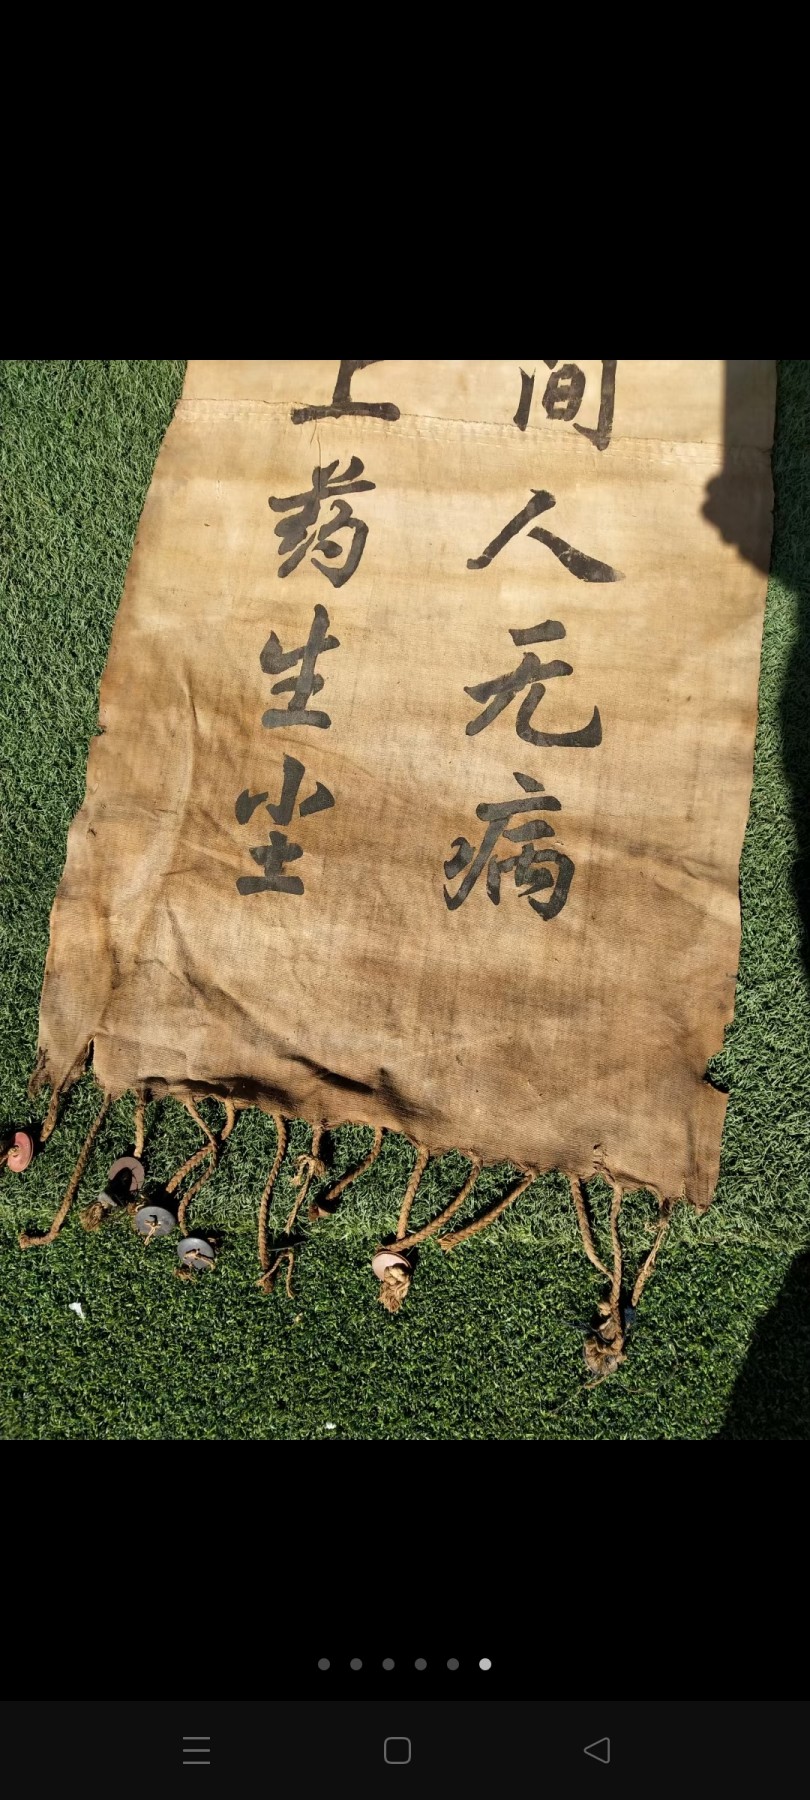 间人无病
上药生尘